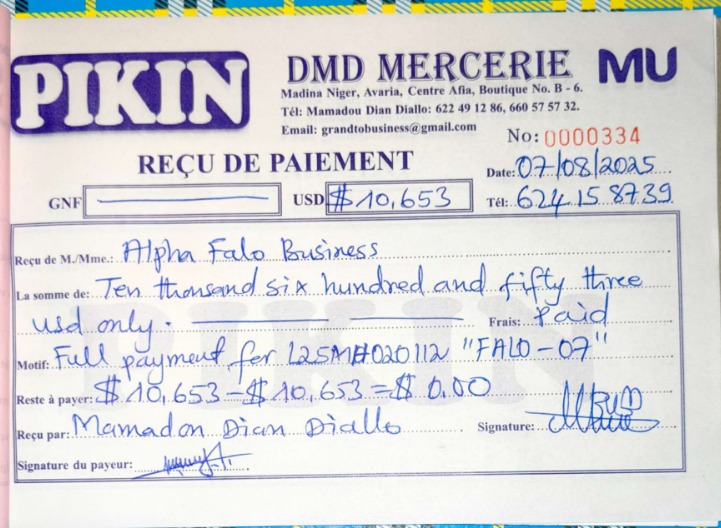 PIKIN
DMD MERCERIE
MU
Madina Niger, Avaria, Centre Afia, Boutique No. B - 6.
Tél: Mamadou Dian Diallo: 622 49 12 86, 660 57 57 32.
Email: grandtobusiness@gmail.com
No: 0000334
REÇU DE PAIEMENT
Date: 07/08/2025
GNF
USD $10,653
Tél: 624 15 87 39
Reçu de M./Mme.: Alpha Falo Business
La somme de: Ten thousand six hundred and fifty three
usd only.
Frais: Paid
Motif: Full payment for L25MH020112 "FALO-07"
Reste à payer: $10,653-$10,653=$ 0.00
Reçu par: Mamadou Dian Diallo
Signature:
Signature du payeur:
PIKIN